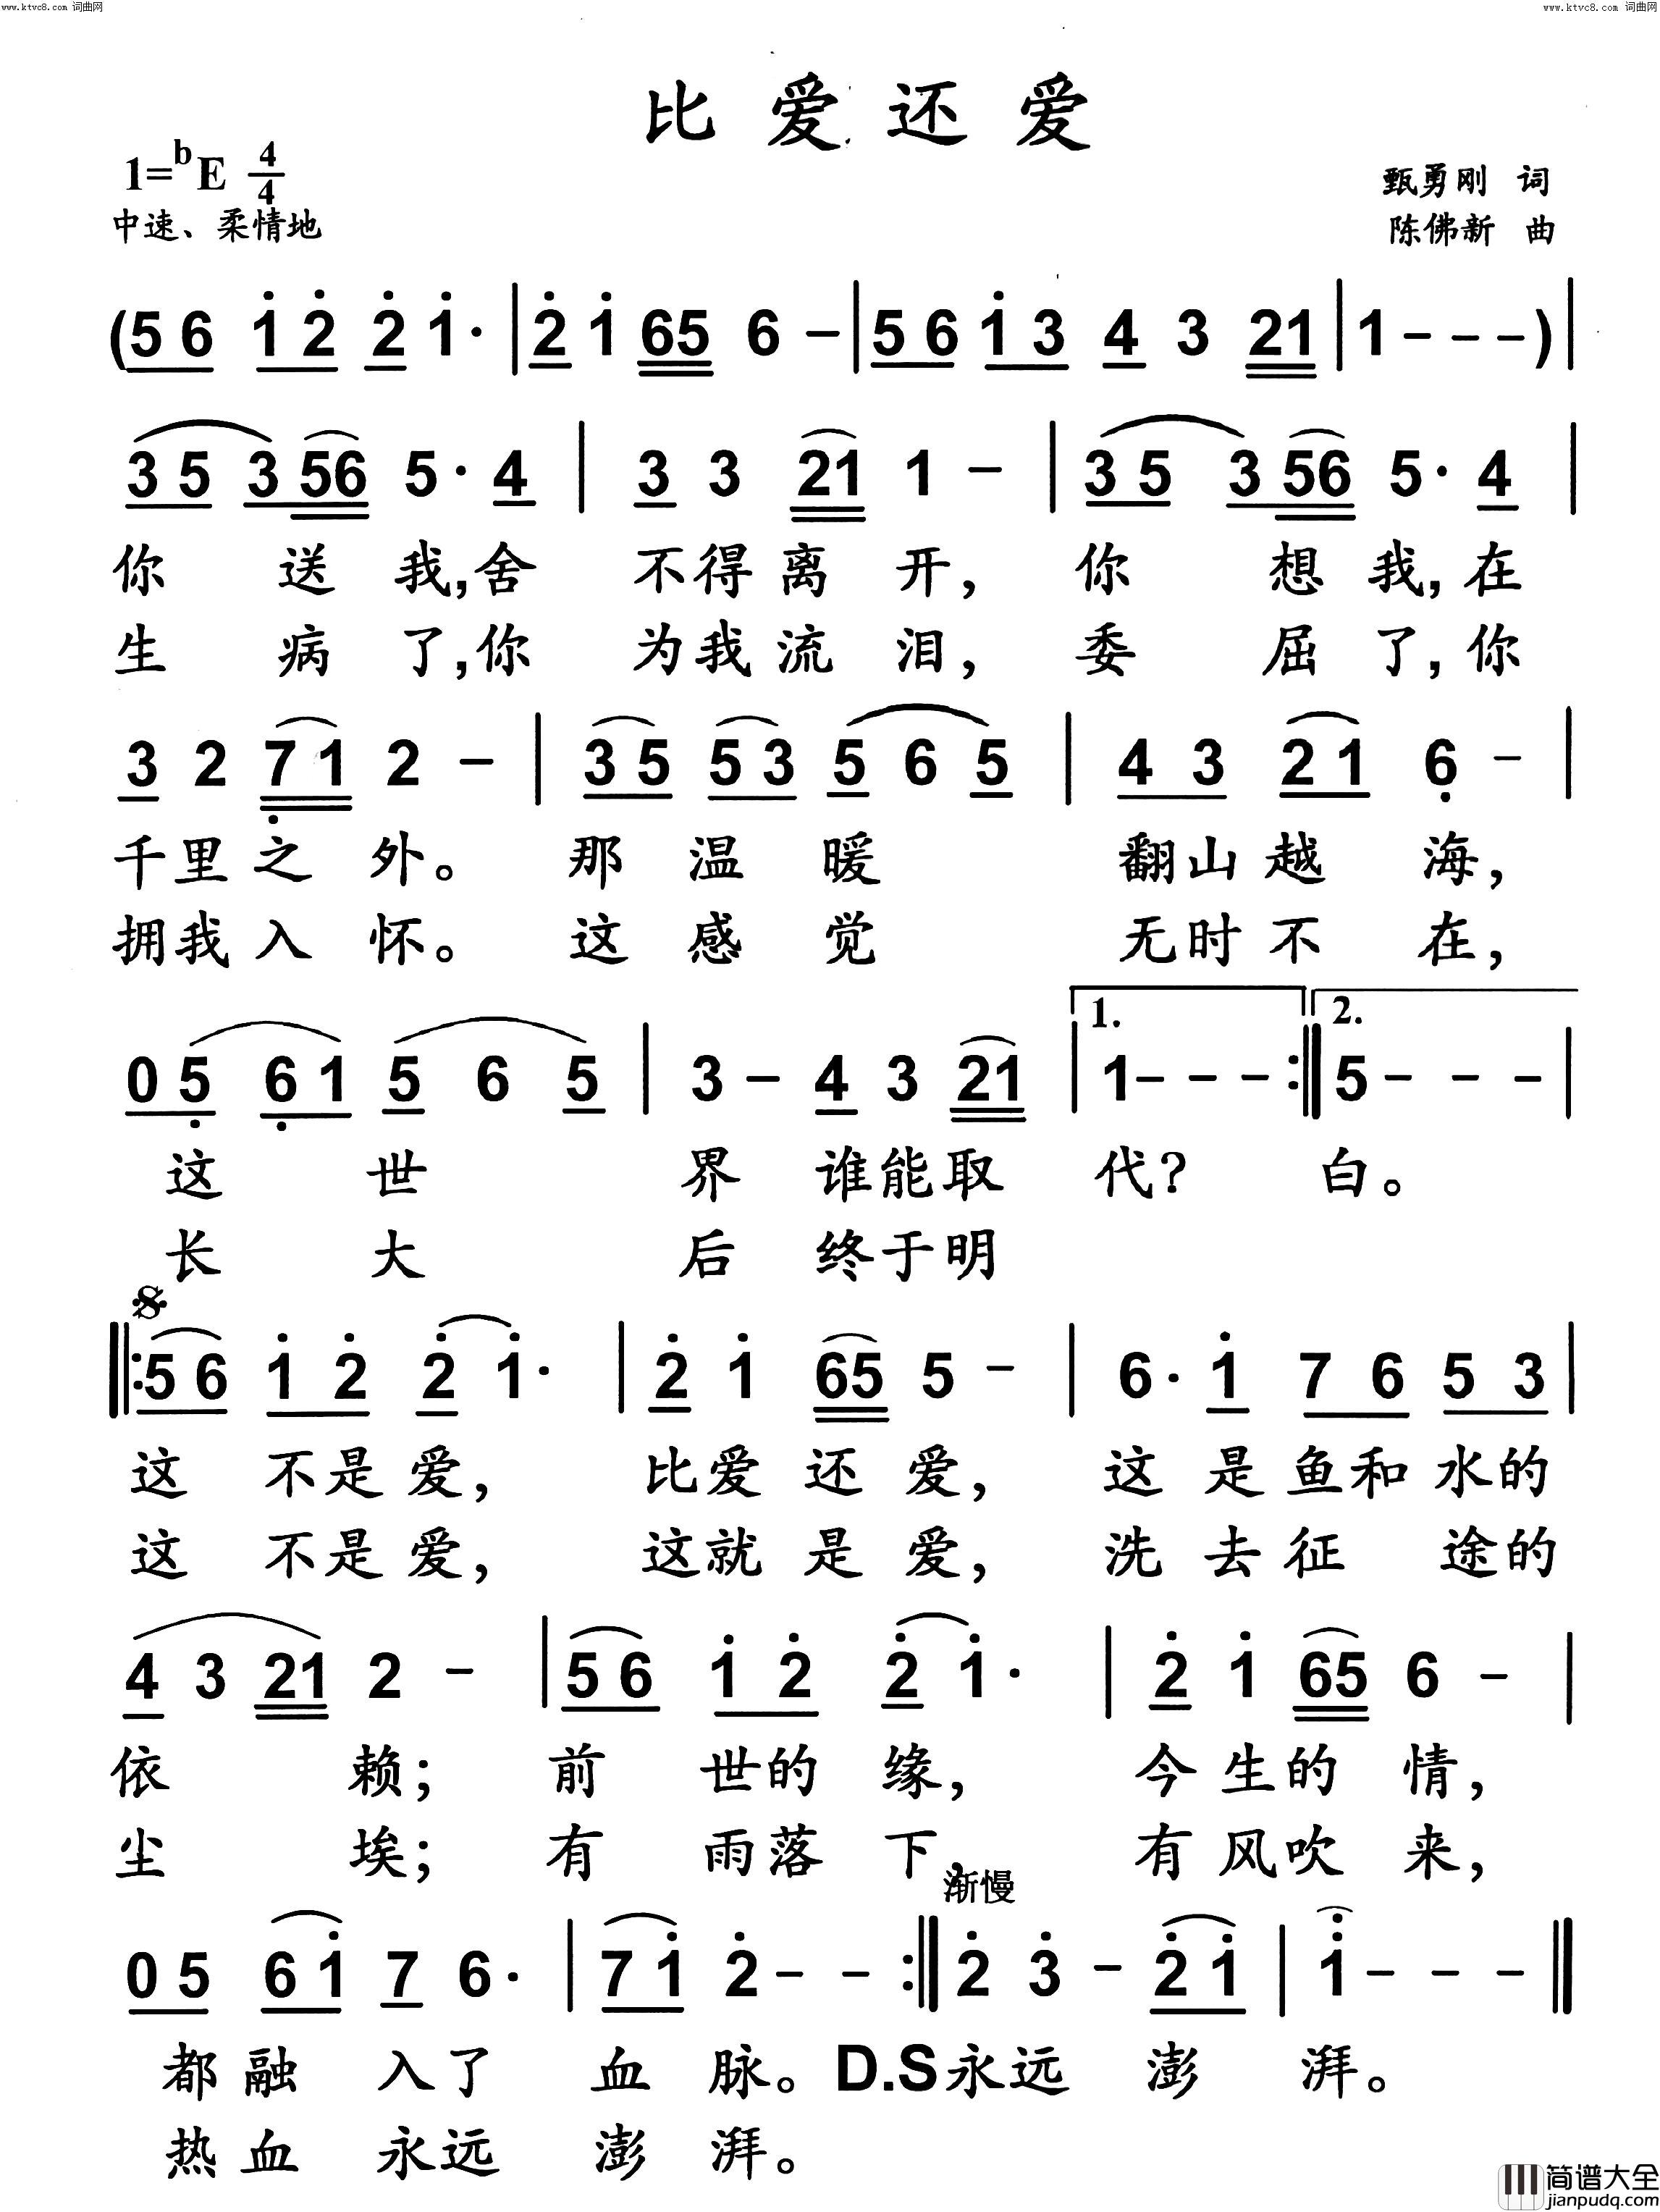 www.ktvc8.com 词曲网 www.ktvc8.com 词曲网
比爱还爱
1=bE 4/4
甄勇刚 词
中速、柔情地
陈佛新 曲
(5 6 1 2 2 1· | 2 1 65 6 – | 5 6 1 3 4 3 21 | 1 – – – ) |
3 5 3 56 5· 4 | 3 3 21 1 – | 3 5 3 56 5· 4 |
你 送 我,舍 不得离 开, 你 想 我,在
生 病 了,你 为我流 泪, 委 屈 了,你
3 2 7 1 2 – | 3 5 5 3 5 6 5 | 4 3 2 1 6 – |
千里之 外。 那 温 暖 翻山越 海,
拥我入 怀。 这 感 觉 无时不 在,
1. 2.
0 5 6 1 5 6 5 | 3 – 4 3 21 | 1 – – – :‖ 5 – – – |
这 世 界 谁能取 代? 白。
长 大 后 终于明
‖: 5 6 1 2 2 1· | 2 1 65 5 – | 6· 1 7 6 5 3 |
这 不是爱, 比爱还 爱, 这 是鱼和 水的
这 不是爱, 这就是 爱, 洗 去征 途的
4 3 21 2 – | 5 6 1 2 2 1· | 2 1 65 6 – |
依 赖; 前 世的 缘, 今 生的 情,
尘 埃; 有 雨落 下, 有风吹 来,
渐慢
0 5 6 1 7 6· | 7 1 2 – – :‖ 2 3 – 2 1 | 1 – – – ‖
都融 入了 血 脉。D.S永远 澎 湃。
热血 永远 澎 湃。
简谱大全
jianpudq.com